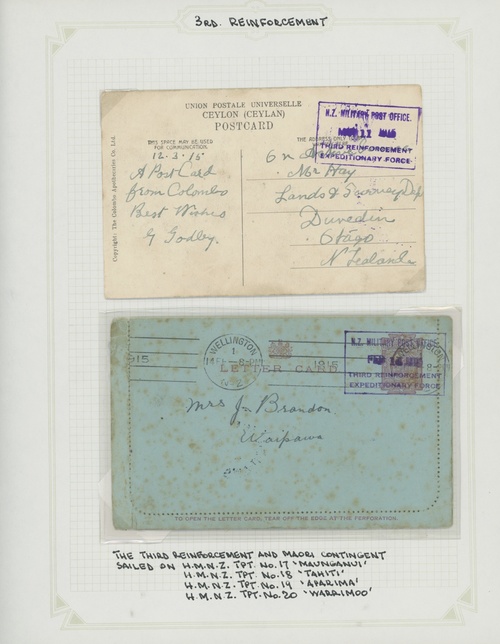 3RD. REINFORCEMENT
UNION POSTALE UNIVERSELLE
CEYLON (CEYLAN)
POSTCARD
THIS SPACE MAY BE USED
FOR COMMUNICATION.
THE ADDRESS ONLY
N.Z. MILITARY POST OFFICE.
THIRD REINFORCEMENT
EXPEDITIONARY FORCE
12.3.15
A Post Card
from Colombo
Best Wishes
G Godley.
Mr Hay
Lands & Survey Dep
Dunedin
Otago
N Zealand
Copyright: The Colombo Apothecaries Co. Ltd.
1915
WELLINGTON
1
N.Z.
1915
LETTER CARD
N.Z. MILITARY POST OFFICE
FEB
THIRD REINFORCEMENT
EXPEDITIONARY FORCE
Mrs Brandon
Waipawa
TO OPEN THE LETTER CARD, TEAR OFF THE EDGE AT THE PERFORATION.
THE THIRD REINFORCEMENT AND MAORI CONTINGENT
SAILED ON H.M.N.Z. TPT. No. 17 'MAUNGANUI'
H.M.N.Z. TPT. No. 18 'TAHITI'
H.M.N.Z. TPT. No. 19 'APARIMA'
H.M.N.Z. TPT. No. 20 'WARRIMOO'